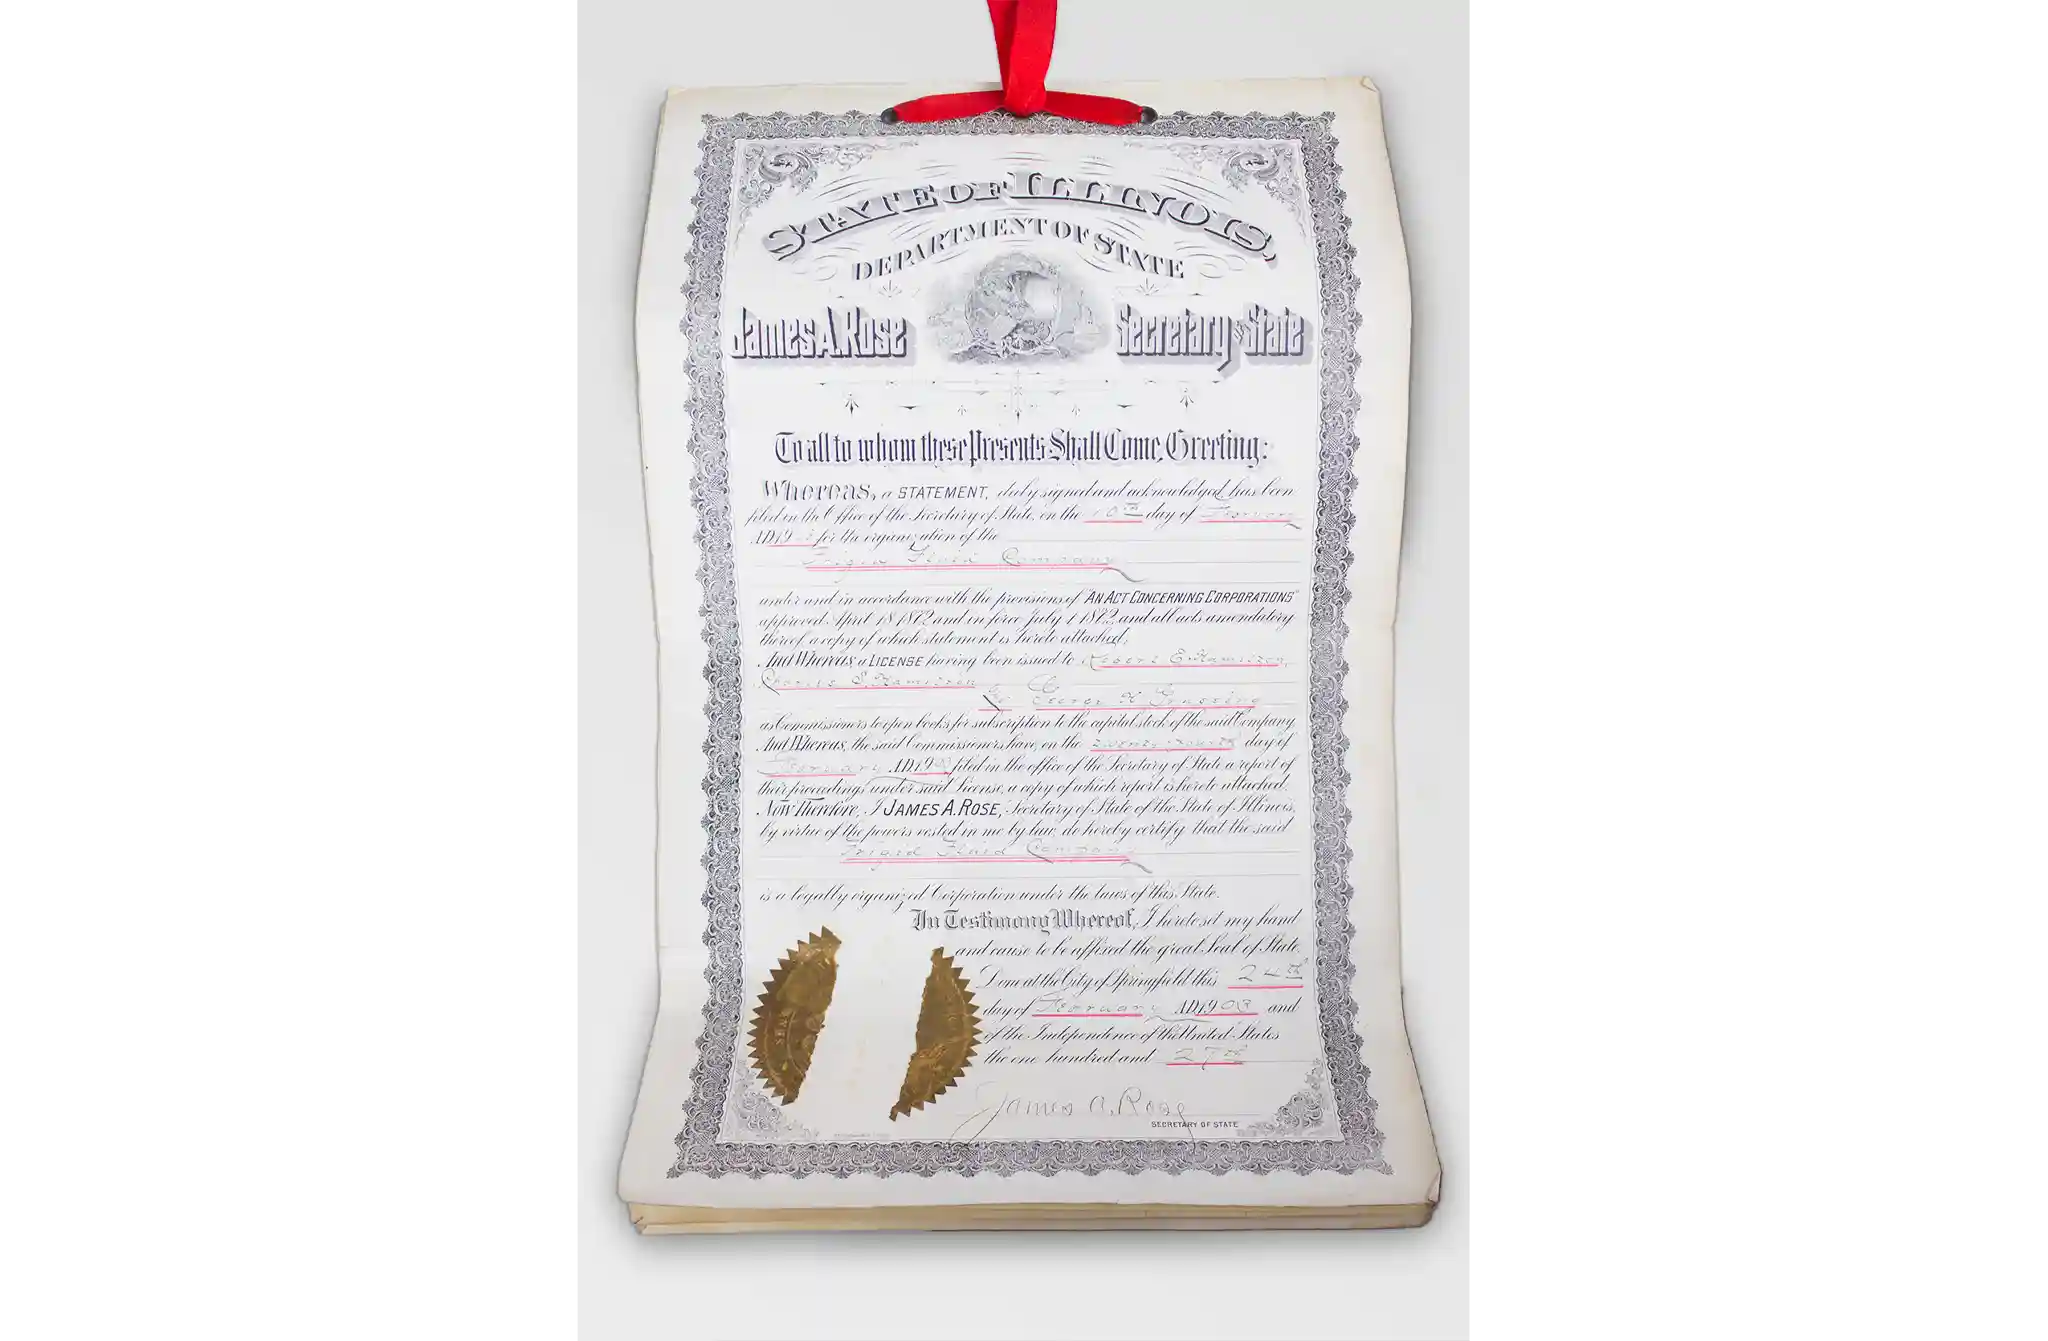 STATE OF ILLINOIS,
DEPARTMENT OF STATE
James A. Rose
Secretary of State
To all to whom these Presents Shall Come, Greeting:
Whereas, a STATEMENT, duly signed and acknowledged, has been
filed in the Office of the Secretary of State, on the 10th day of February
A.D. 19 for the organization of the
Frigid Fluid Company
under and in accordance with the provisions of "AN ACT CONCERNING CORPORATIONS"
approved April 18 1872, and in force July 1 1872, and all acts amendatory
thereof, a copy of which statement is hereto attached;
And Whereas, a LICENSE having been issued to Robert E. Hamilton,
Charles E. Hamilton
George H.
as Commissioners to open books for subscription to the capital stock of the said Company
And Whereas, the said Commissioners have, on the twenty fourth day of
February A.D. 1903 filed in the office of the Secretary of State a report of
their proceedings under said License, a copy of which report is hereto attached.
Now Therefore, I JAMES A. ROSE, Secretary of State of the State of Illinois,
by virtue of the powers vested in me by law, do hereby certify that the said
Frigid Fluid Company
is a legally organized Corporation under the laws of this State.
In Testimony Whereof, I hereto set my hand
and cause to be affixed the great Seal of State.
Done at the City of Springfield this 24th
day of February A.D. 1903 and
of the Independence of the United States
the one hundred and 27th
James A. Rose
SECRETARY OF STATE
SEAL